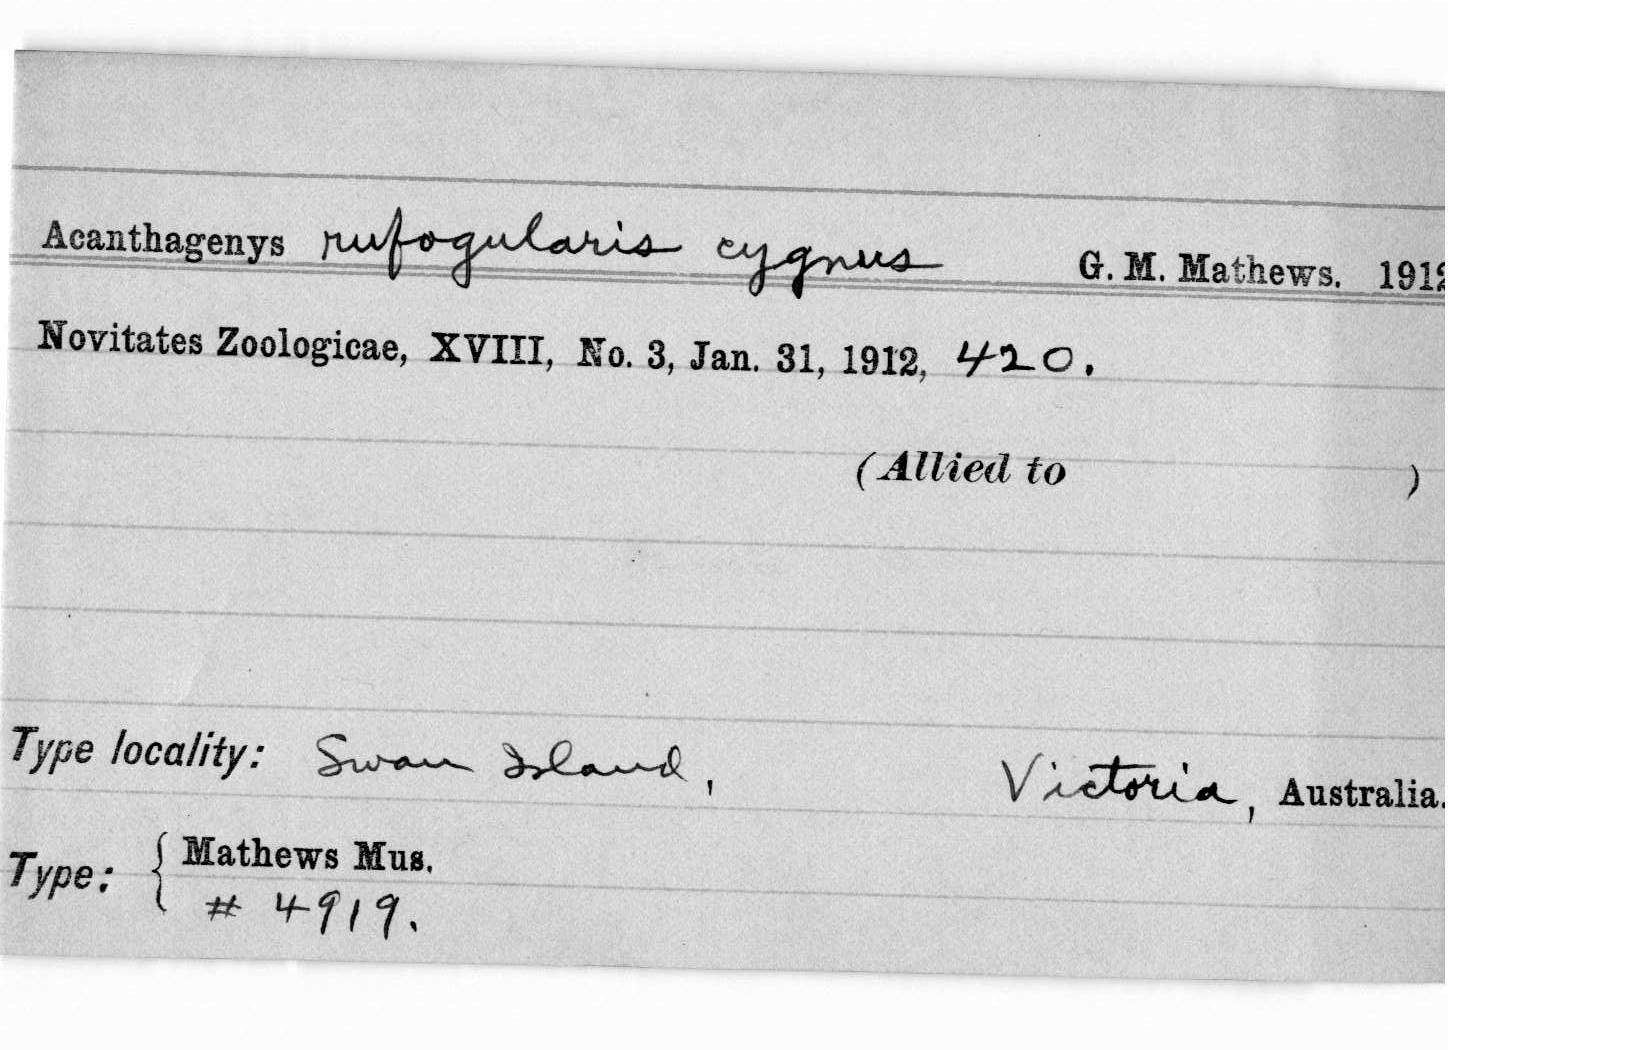 Acanthagenys rufogularis cygnus G. M. Mathews. 1912
Novitates Zoologicae, XVIII, No. 3, Jan. 31, 1912, 420.
(Allied to )
Type locality: Swan Island, Victoria, Australia.
Type: { Mathews Mus.
# 4919.